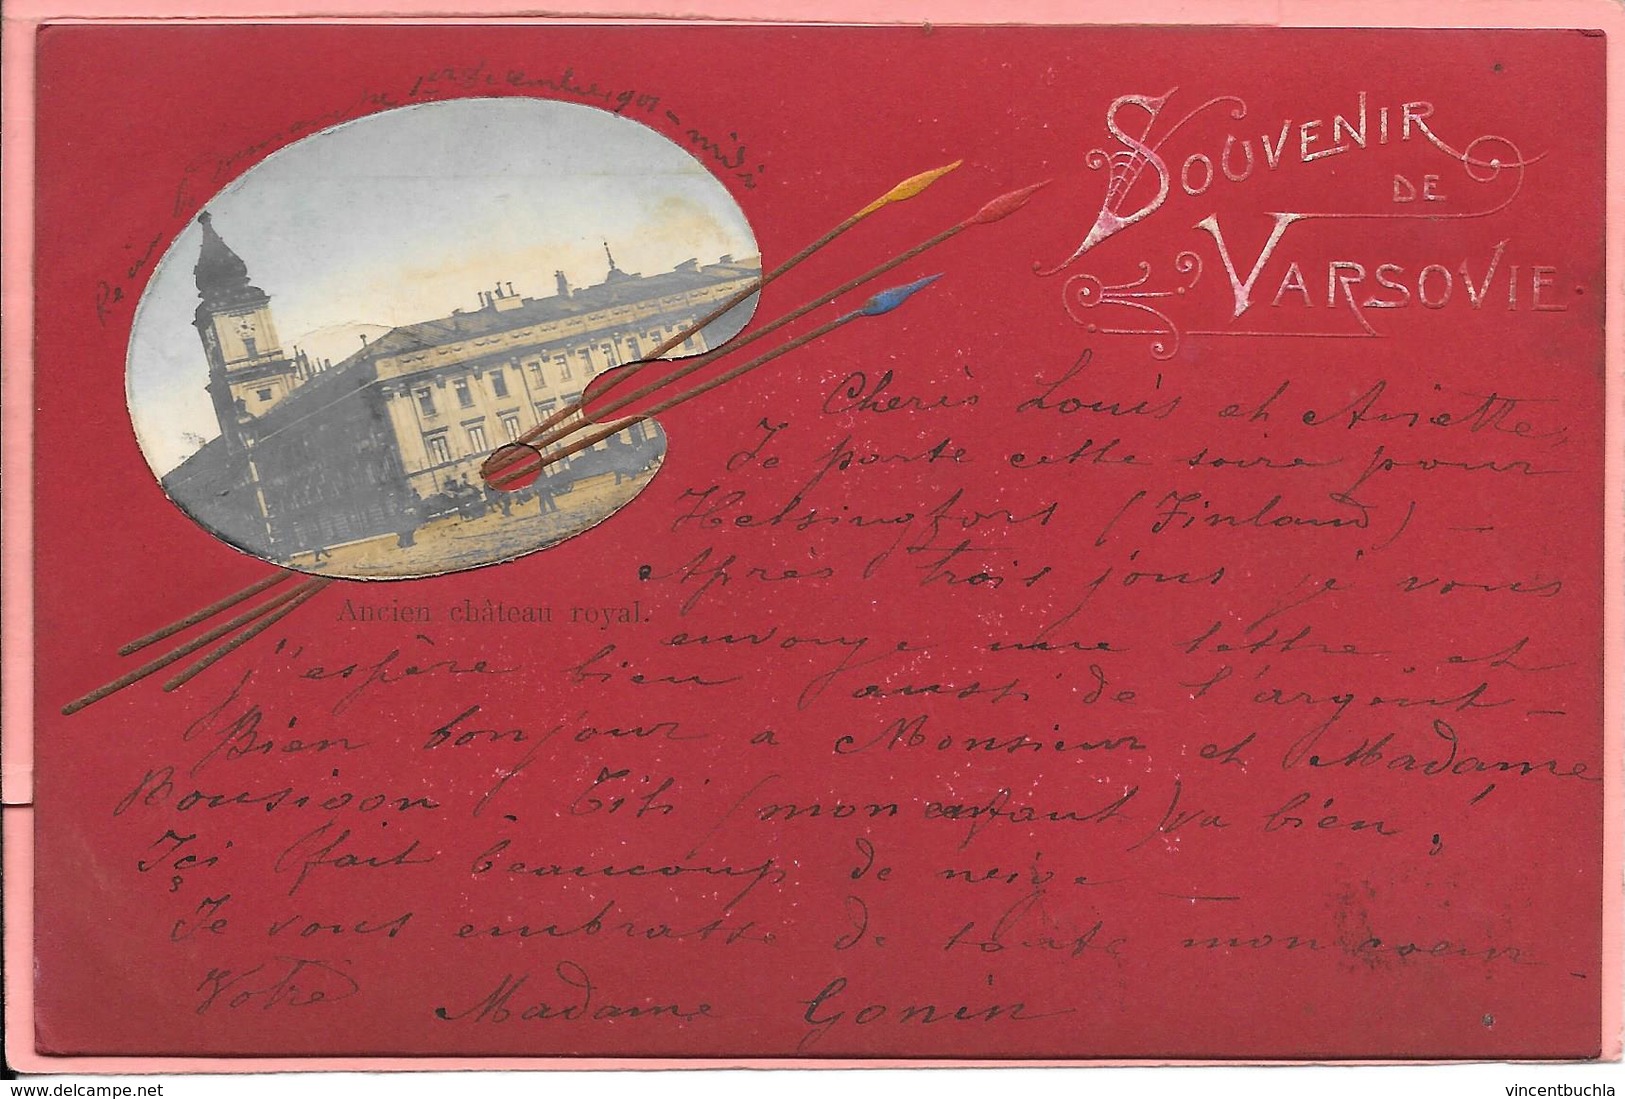 dimanche 1er décembre 1901 – midi
SOUVENIR
DE
VARSOVIE
Cherès Louis et Ariette
Je parte cette soire pour
Helsingfors (Finland) –
Après trois jous je vous
Ancien château royal.
envoye une lettre et
j'espère bien aussi de l'argent –
Bien bonjour a Monsieur et Madame
Rousigon – Titi (mon enfant) va bien!
Içi fait beaucoup de neige –
Je vous embrasse de toute mon coeur –
Votre Madame Gonin
delcampe.net
vincentbuchla